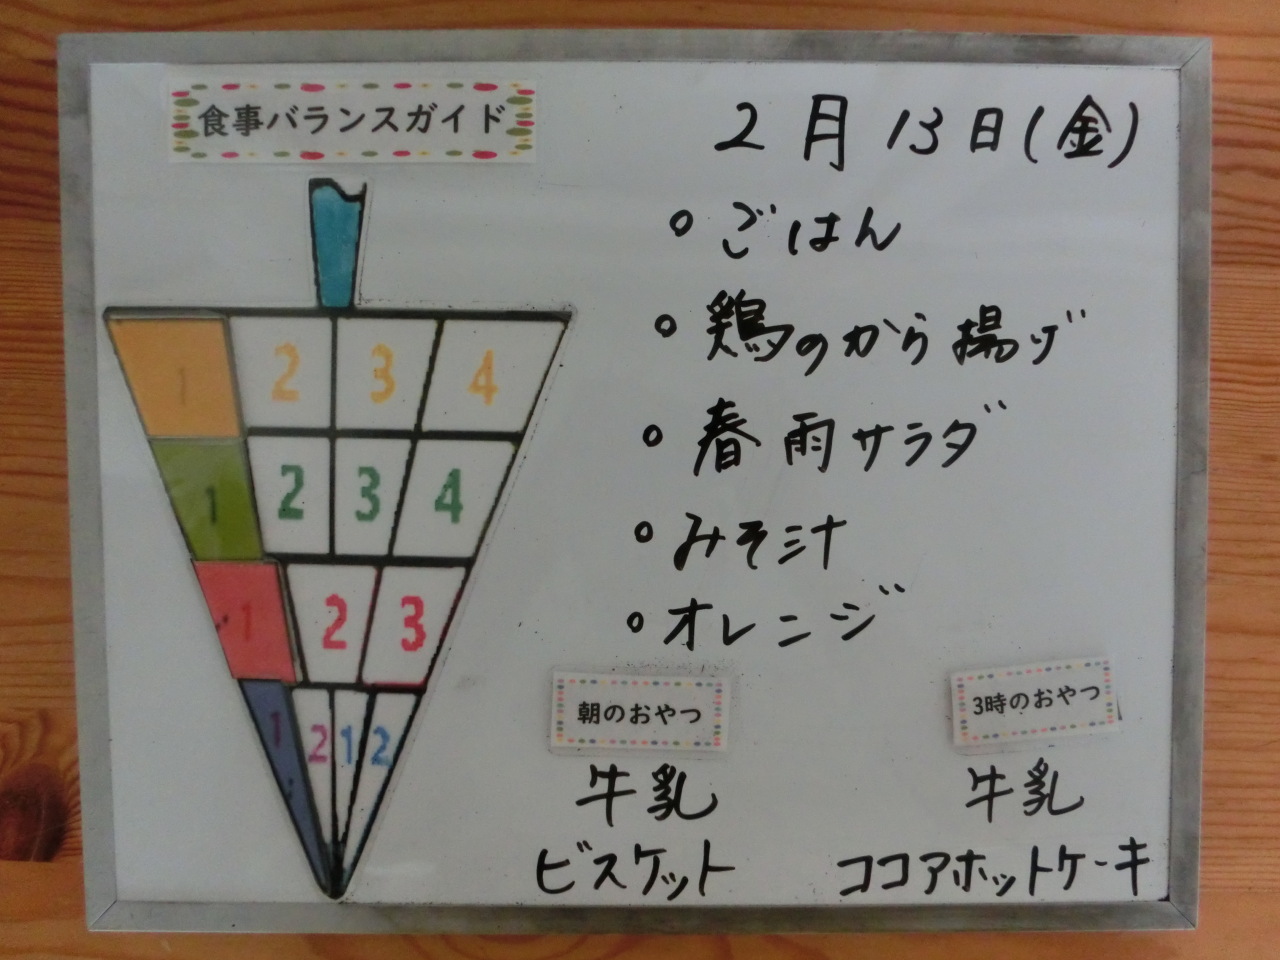 食事バランスガイド
1 2 3 4
1 2 3 4
1 2 3
1 2 1 2
2月13日(金)
。ごはん
。鶏のから揚げ
。春雨サラダ
。みそ汁
。オレンジ
朝のおやつ
牛乳
ビスケット
3時のおやつ
牛乳
ココアホットケーキ